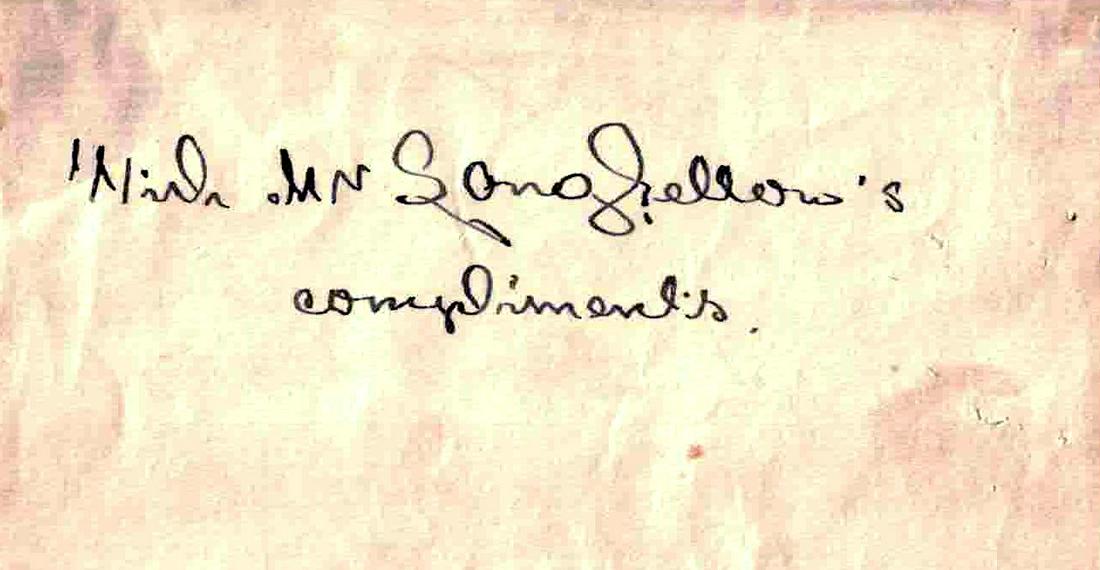 With Mr Longfellow's
compliments.